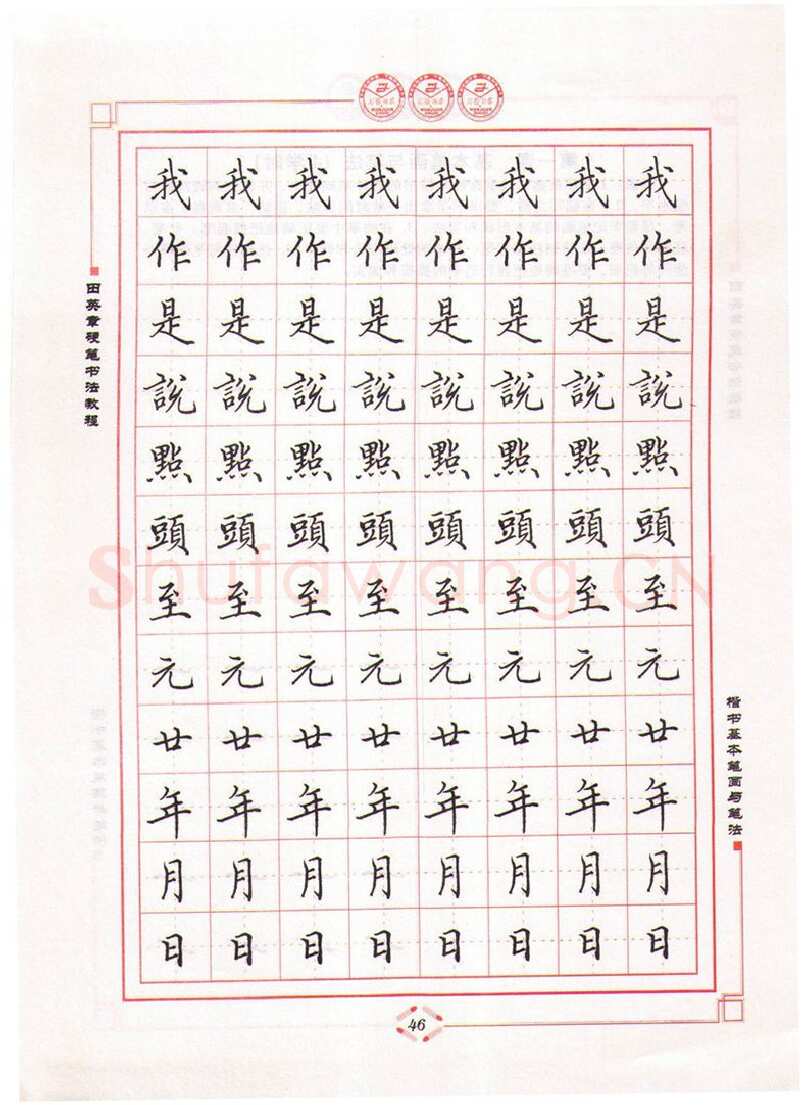 我 我 我 我 我 我 我 我
作 作 作 作 作 作 作 作
是 是 是 是 是 是 是 是
說 說 說 說 說 說 說 說
點 點 點 點 點 點 點 點
頭 頭 頭 頭 頭 頭 頭 頭
至 至 至 至 至 至 至 至
元 元 元 元 元 元 元 元
廿 廿 廿 廿 廿 廿 廿 廿
年 年 年 年 年 年 年 年
月 月 月 月 月 月 月 月
日 日 日 日 日 日 日 日
田英章硬笔书法教程
楷书基本笔画与笔法
46
Shufawang.CN